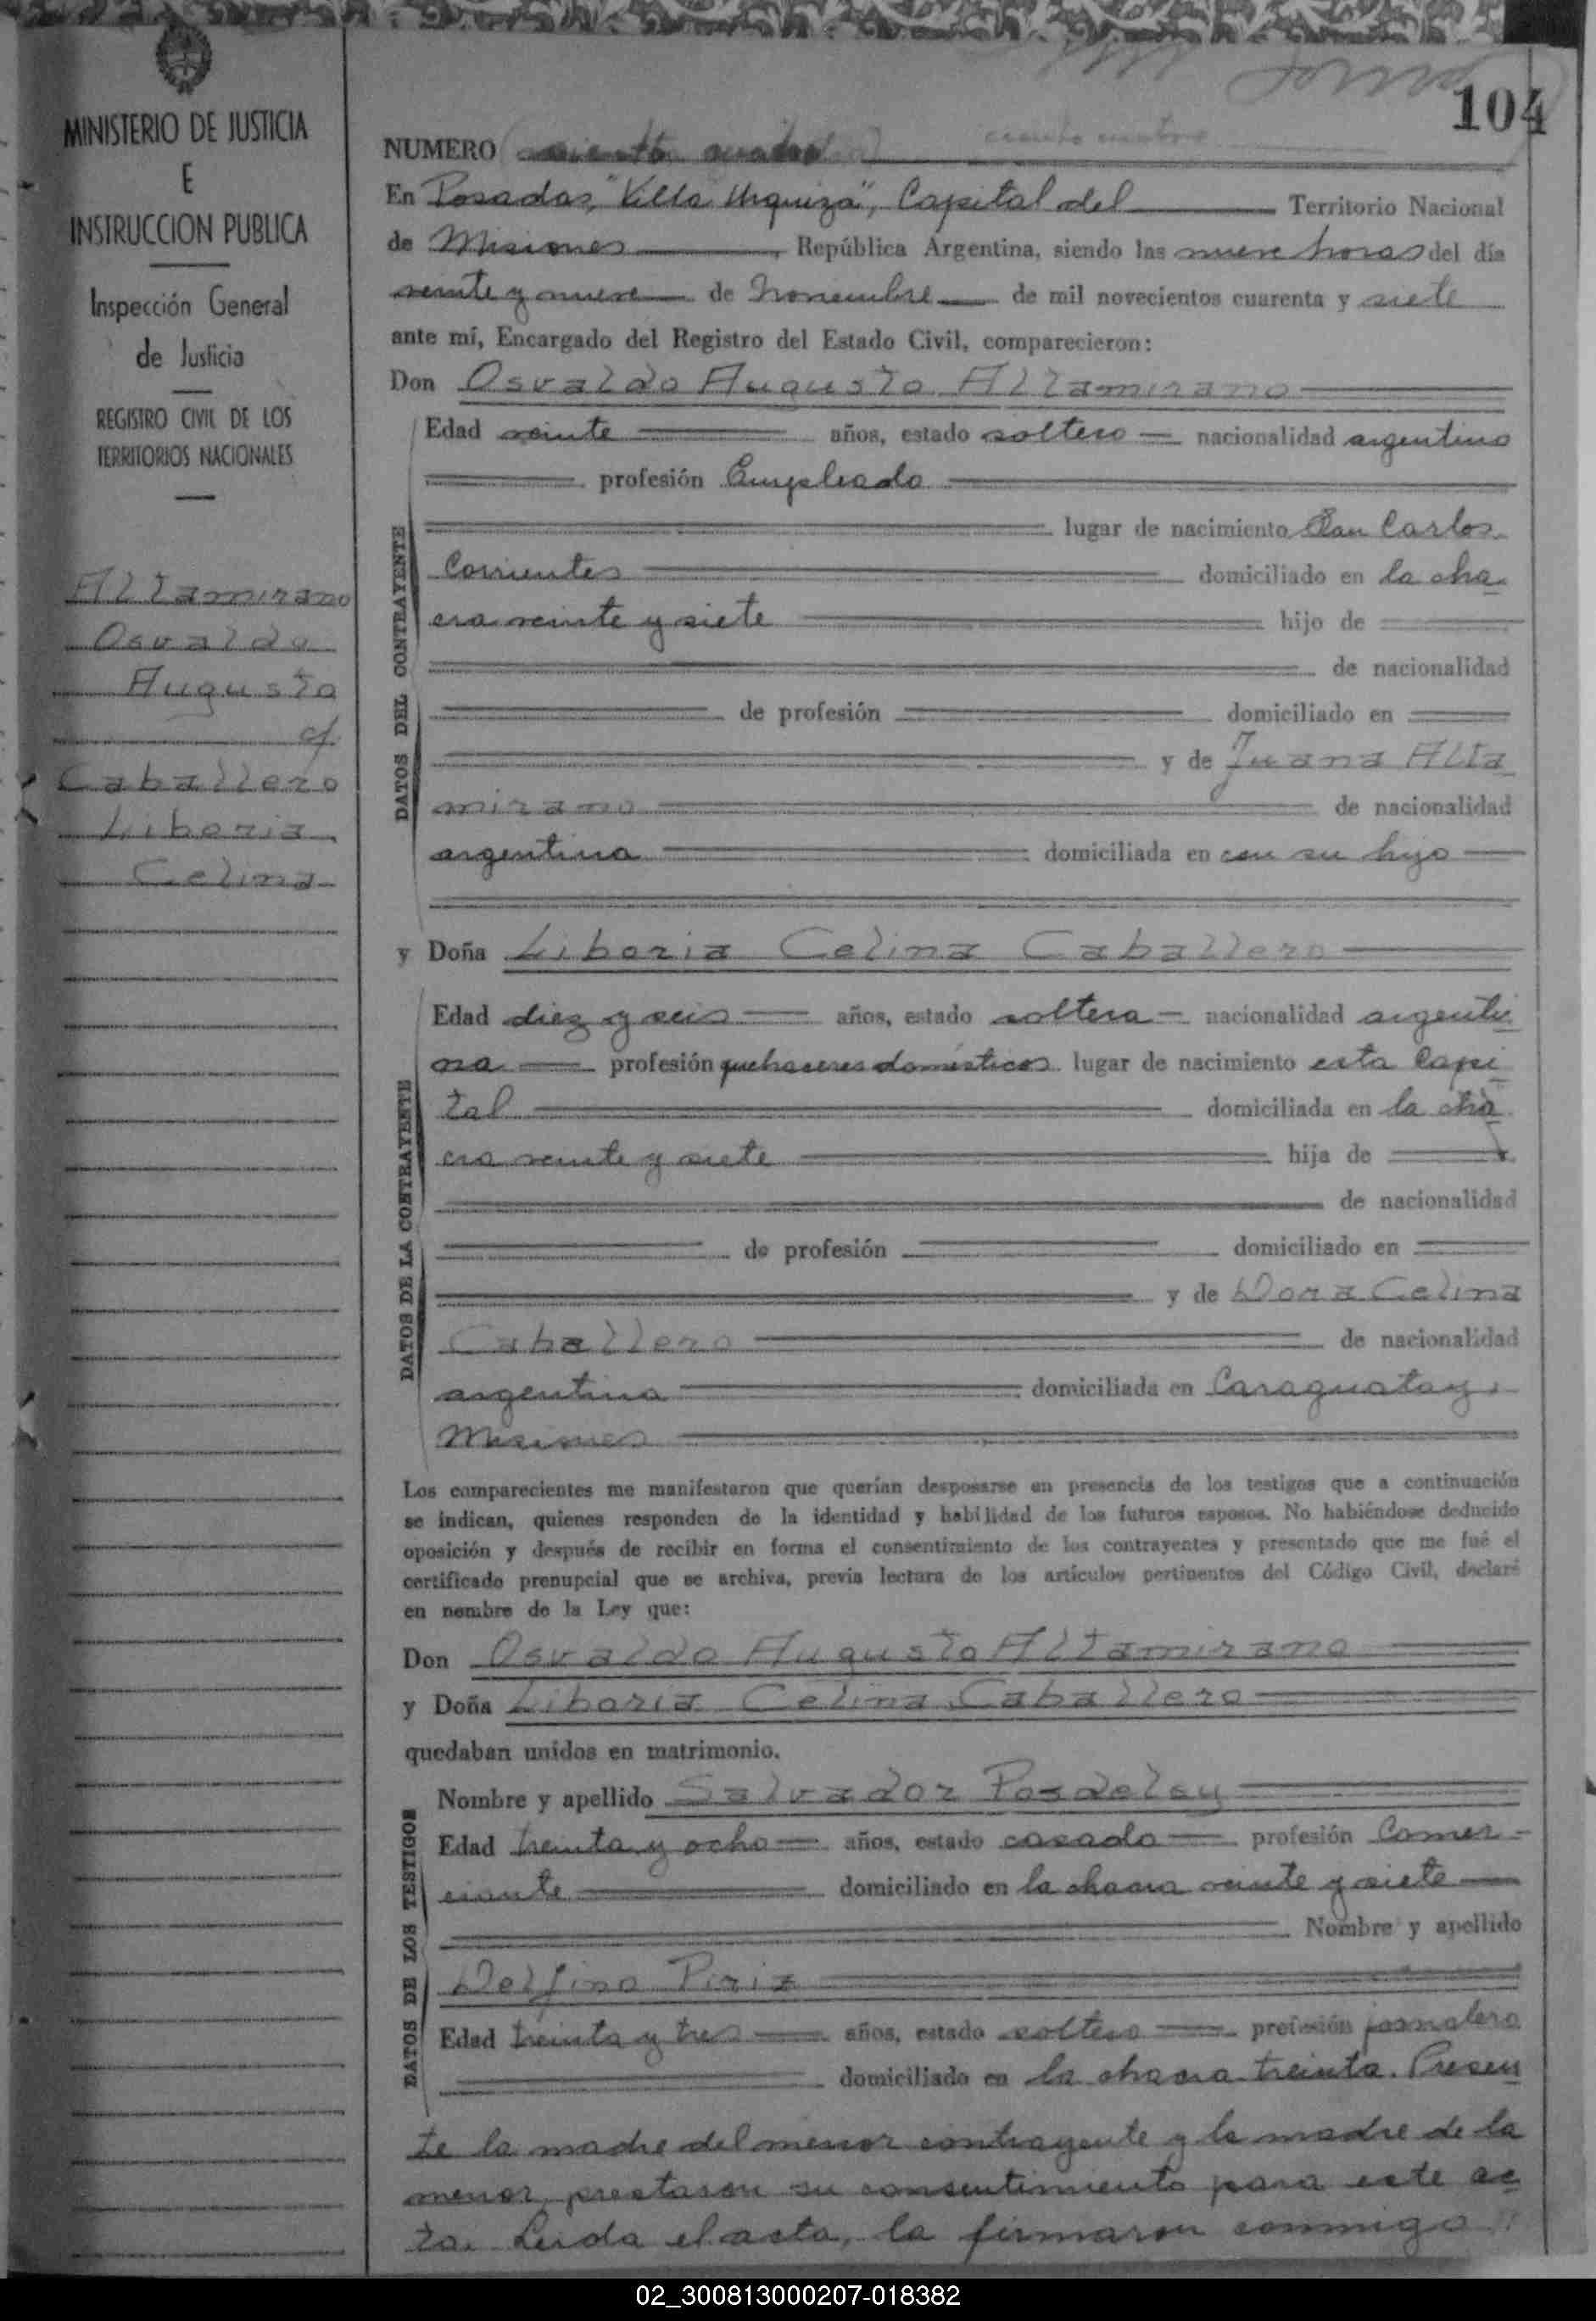 MINISTERIO DE JUSTICIA
E
INSTRUCCION PUBLICA
Inspección General
de Justicia
REGISTRO CIVIL DE LOS
TERRITORIOS NACIONALES
Altamirano
Osvaldo
Augusto
c/.
Caballero
Liboria
Celina
104
NUMERO (ciento cuatro) ciento cuatro
En Posadas, "Villa Urquiza", Capital del Territorio Nacional
de Misiones, República Argentina, siendo las nueve horas del día
veinte y nueve de Noviembre de mil novecientos cuarenta y siete
ante mí, Encargado del Registro del Estado Civil, comparecieron:
Don Osvaldo Augusto Altamirano
DATOS DEL CONTRAYENTE
Edad veinte años, estado soltero nacionalidad argentino
profesión Empleado
lugar de nacimiento San Carlos
Corrientes domiciliado en la cha
cra veinte y siete hijo de
de nacionalidad
de profesión domiciliado en
y de Juana Alta
mirano de nacionalidad
argentina domiciliada en con su hijo
y Doña Liboria Celina Caballero
DATOS DE LA CONTRAYENTE
Edad diez y seis años, estado soltera nacionalidad argenti
na profesión quehaceres domésticos lugar de nacimiento esta Capi
tal domiciliada en la cha
cra veinte y siete hija de
de nacionalidad
de profesión domiciliado en
y de Dora Celina
Caballero de nacionalidad
argentina domiciliada en Caraguatay,
Misiones
Los comparecientes me manifestaron que querían desposarse en presencia de los testigos que a continuación
se indican, quienes responden de la identidad y habilidad de los futuros esposos. No habiéndose deducido
oposición y después de recibir en forma el consentimiento de los contrayentes y presentado que me fué el
certificado prenupcial que se archiva, previa lectura de los artículos pertinentes del Código Civil, declaré
en nombre de la Ley que:
Don Osvaldo Augusto Altamirano
y Doña Liboria Celina Caballero
quedaban unidos en matrimonio.
DATOS DE LOS TESTIGOS
Nombre y apellido Salvador Posdeley
Edad treinta y ocho años, estado casado profesión Comer-
ciante domiciliado en la chacra veinte y siete
Nombre y apellido
Delfino Piriz
Edad treinta y tres años, estado soltero profesión jornalero
domiciliado en la chacra treinta. Presen
te la madre del menor contrayente y la madre de la
menor, prestaron su consentimiento para este ac
to. Leida el acta, la firmaron conmigo
02_300813000207-018382